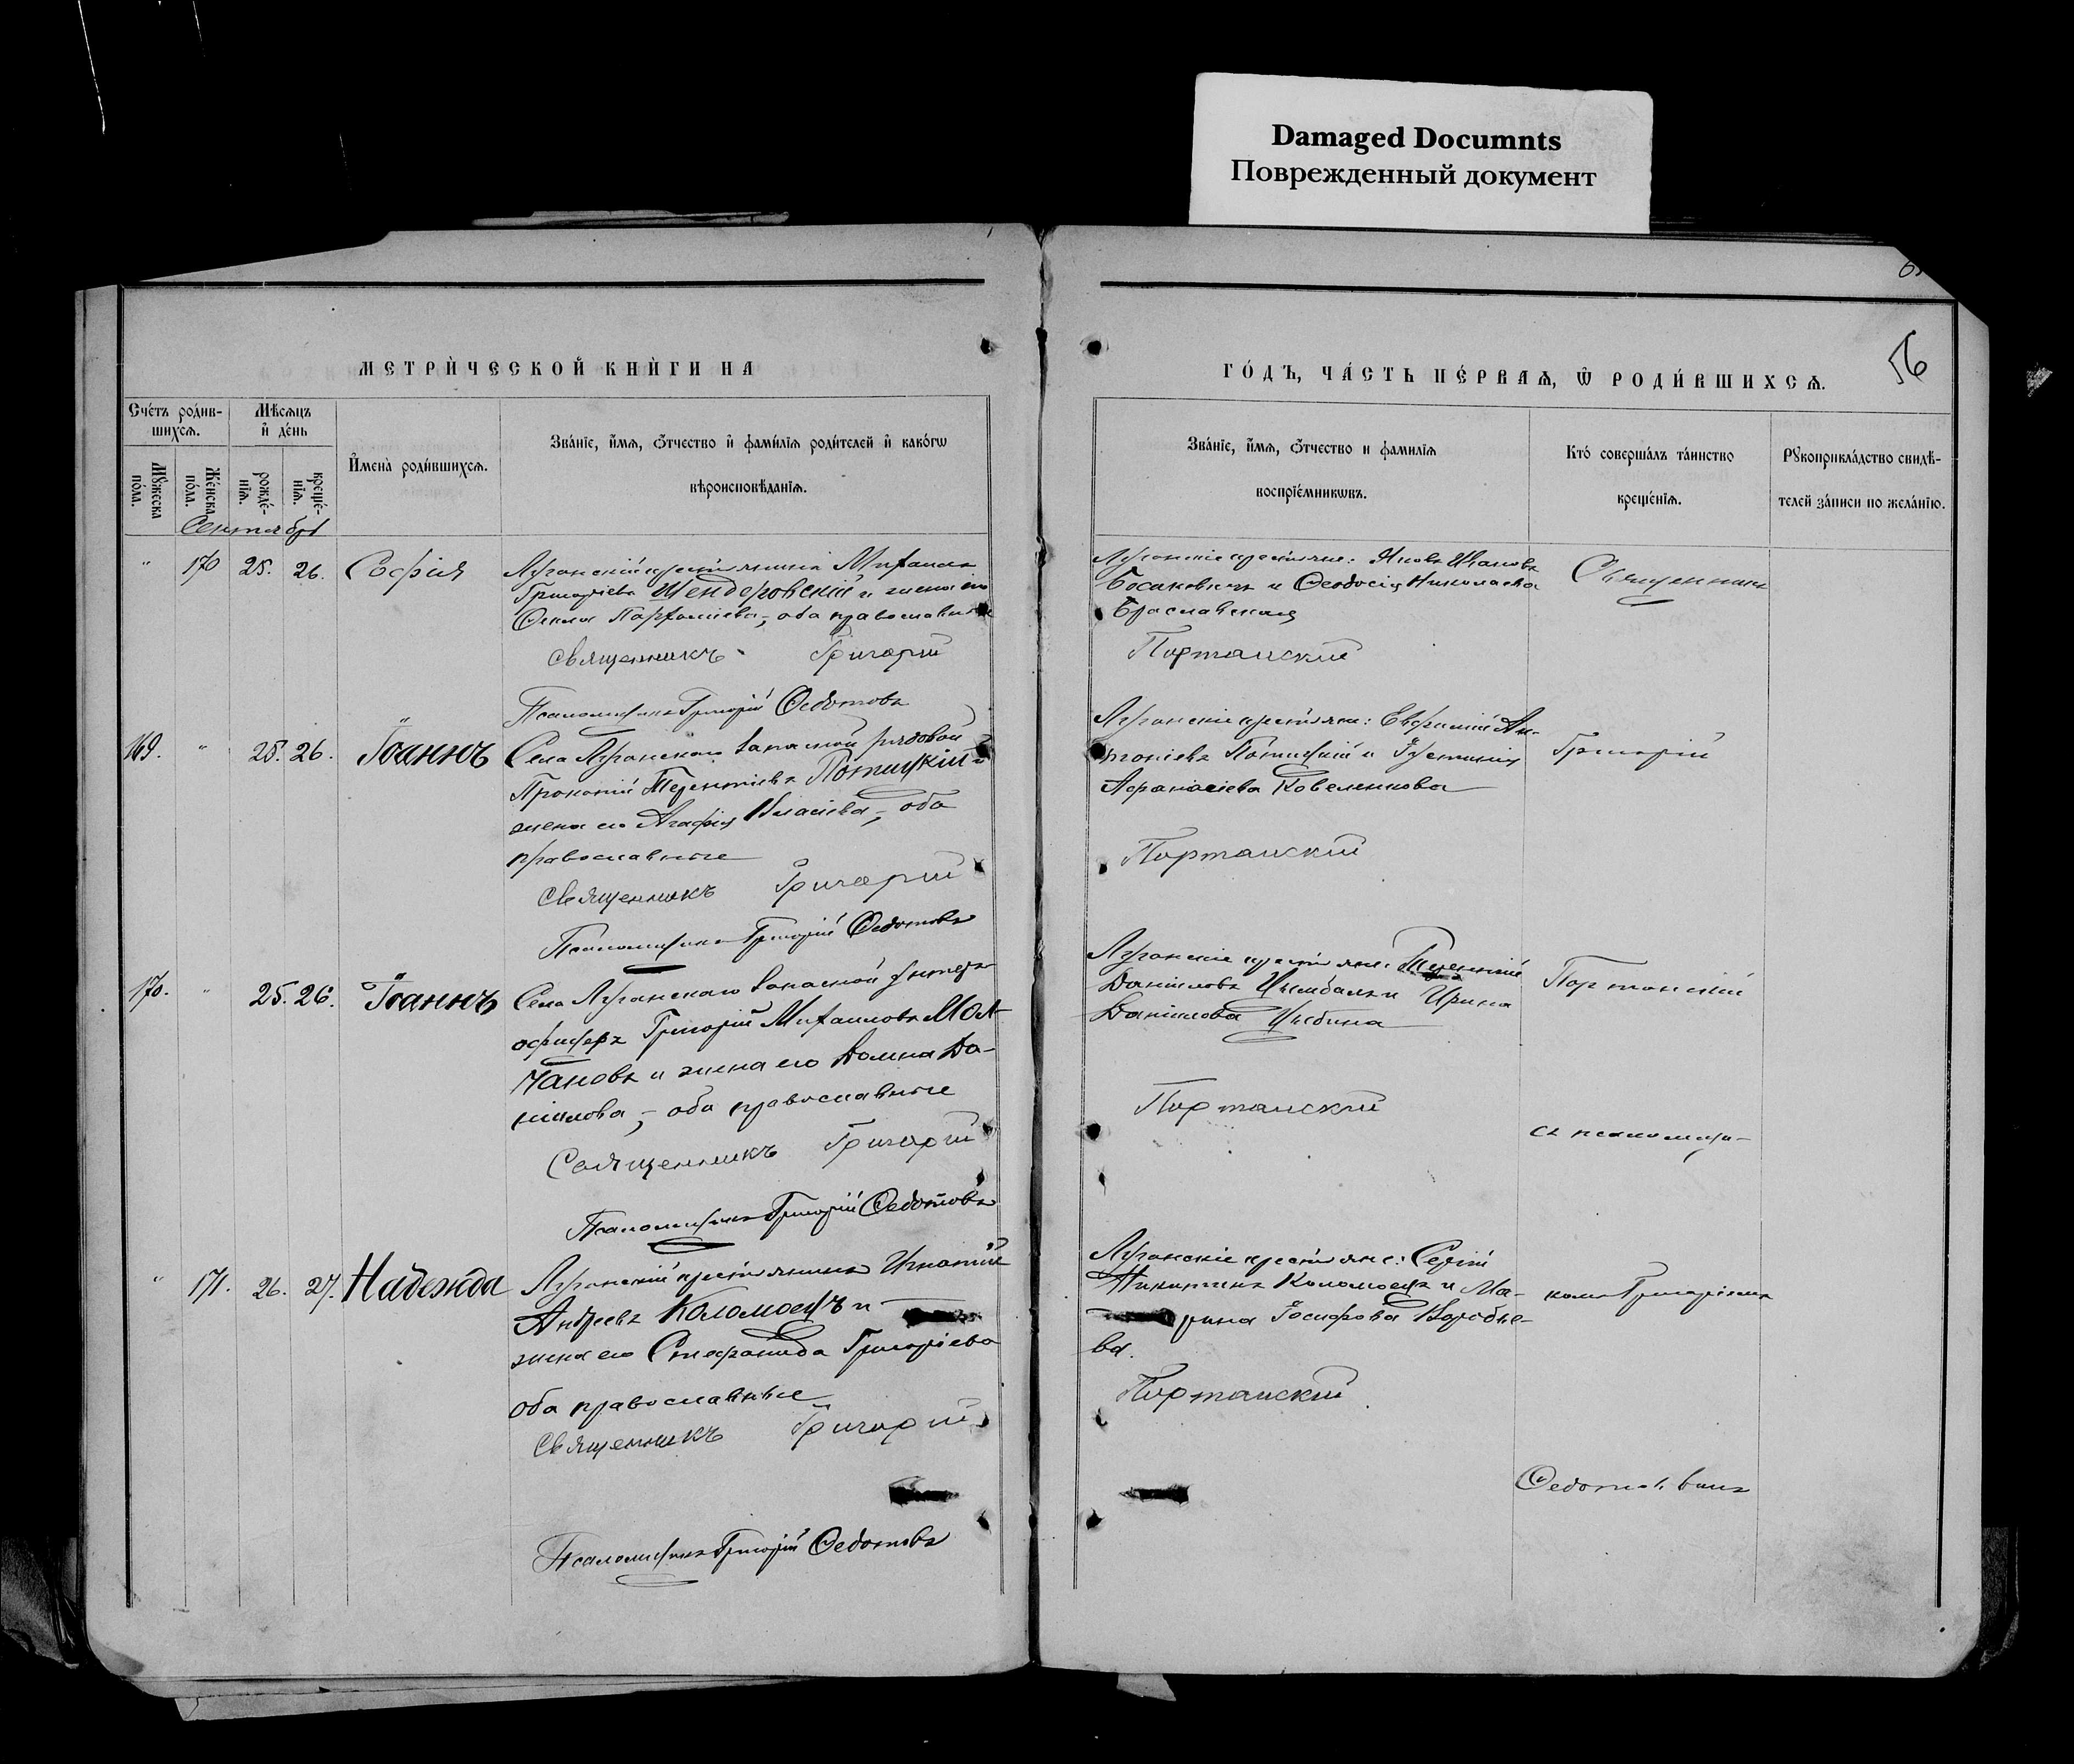 Damaged Documnts
Поврежденный документ
56
МЕТРИ́ЧЕСКОЙ КНИ́ГИ НА
ГО́ДЪ, ЧА́СТЬ ПЕ́РВАЯ, Ѿ РОДИ́ВШИХСЯ.
Сче́тъ роди́в-
шихся.
Мѣ́сяцъ
и де́нь
Мꙋ́жеска
по́ла.
Же́нска
по́ла.
рожде́-
нїя.
креще́-
нїя.
Имена̀ роди́вшихся.
Зва́нїе, и́мя, ѻ́тчество и фами́лїя роди́телей и како́гѡ
вѣроисповѣ́данїя.
Зва́нїе, и́мя, ѻ́тчество и фами́лїя
воспрїе́мникѡвъ.
Кто́ соверша́лъ та́инство
креще́нїя.
Рꙋкоприкла́дство свидѣ́-
телей за́писи по жела́нїю.
Сентябрь
" 170 25. 26. Софія
Луганскій крестьянинъ Михаилъ
Григоріевъ Шендеровскій и жена его
Ѳекла Парѳеніева, оба православные
Священникъ Григорій
Псаломщикъ Григорій Ѳедотовъ
Луганскіе крестьяне: Яковъ Ивановъ
и Ѳеодосія Николаева
Браславская
Портанскій
Священникъ
169. " 25. 26. Іоаннъ
Села Луганскаго запасной рядовой
Прокопій Терентіевъ Потицкій и
жена его Агафія Власіева, оба
православные
Священникъ Григорій
Псаломщикъ Григорій Ѳедотовъ
Луганскіе крестьяне: Евфимій Ан-
тоніевъ Потицкій и Іустинія
Аѳанасіева Ковеленкова
Портанскій
Григорій
170. " 25. 26. Іоаннъ
Села Луганскаго запасной унтеръ
офицеръ Григорій Михаиловъ Мол-
чановъ и жена его Домна Да-
ніилова, оба православные
Священникъ Григорій
Псаломщикъ Григорій Ѳедотовъ
Луганскіе крестьяне: Терентій
Даніиловъ Цымбалъ и Ирина
Даніилова Цыбина
Портанскій
Портанскій
съ псаломщи-
" 171. 26. 27. Надежда
Луганскій крестьянинъ Игнатій
Андреевъ Коломоецъ и
жена его Стефанида Григоріева
оба православные
Священникъ Григорій
Псаломщикъ Григорій Ѳедотовъ
Луганскіе крестьяне: Сергій
Никитинъ Коломоецъ и Ма-
рина Іосифова Воробье-
ва.
Портанскій
комъ Григоріемъ
Ѳедотовымъ